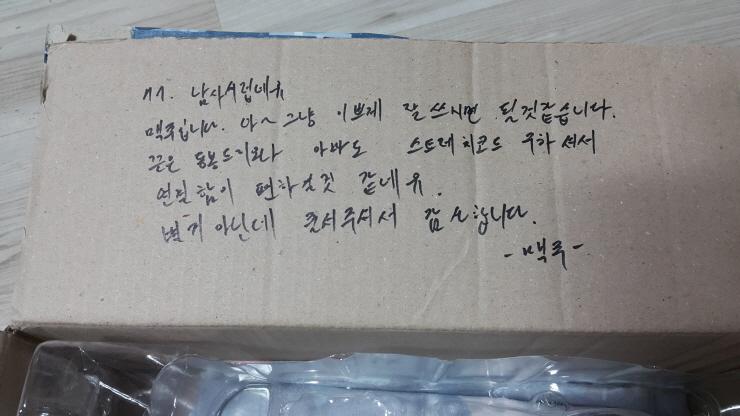 ㄲㄲ. 남사시럽네유
맥주입니다. 아~ 그냥 이쁘게 잘 쓰시면 될것같습니다.
끈은 동봉드리오나 아마도 스트레치코드 구하셔서
연결함이 편하실것 같네유.
별거 아닌데 줄서주셔서 감사합니다.
- 맥주 -